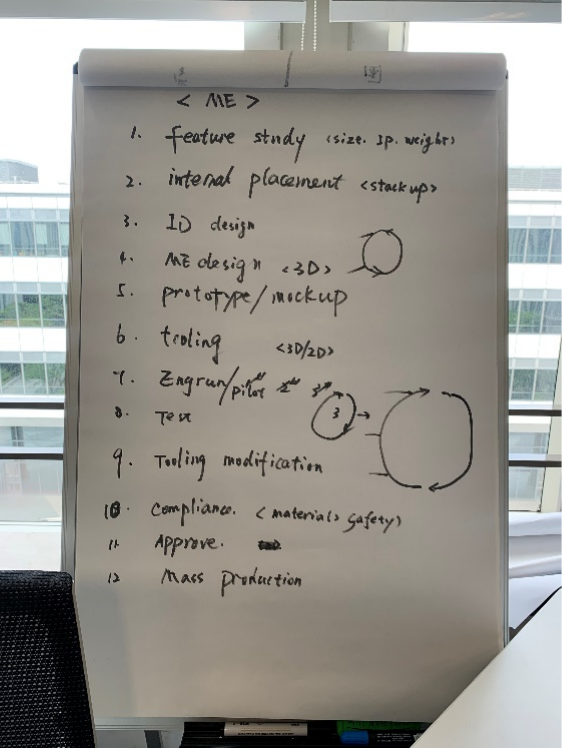 < ME >
1. feature study <size. IP. weight>
2. internal placement <stack up>
3. ID design
4. ME design <3D>
5. prototype/mockup
6. tooling <3D/2D>
7. Engrun/pilot 1st 2nd 3rd
8. Test
3
9. Tooling modification
10. compliance. <material> safety>
11 Approve.
12 Mass production